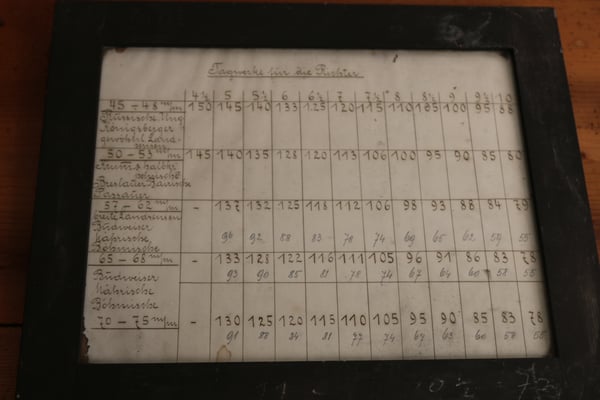 Tagwerke für die Richter
4½ 5 5½ 6 6½ 7 7½ 8 8½ 9 9½ 10
45 – 48 m/m 150 145 140 133 125 120 115 110 105 100 95 88
Russische Ung
Königsberger
gewöhnl. Land-
50 – 53 m/m 145 140 135 128 120 113 106 100 95 90 85 80
Breslauer Bairische
Passauer
57 – 62 m/m - 137 132 125 118 112 106 98 93 88 84 79
breite Landsensen
Budweiser 96 92 88 83 78 74 69 65 62 59 55
Mährische
Böhmische
65 – 68 m/m - 133 128 122 116 111 105 96 91 86 83 78
Budweiser 93 90 85 81 78 74 67 64 60 58 55
Mährische
Böhmische
70 – 75 m/m - 130 125 120 115 110 105 95 90 85 83 78
91 88 84 81 77 74 67 63 60 58 55